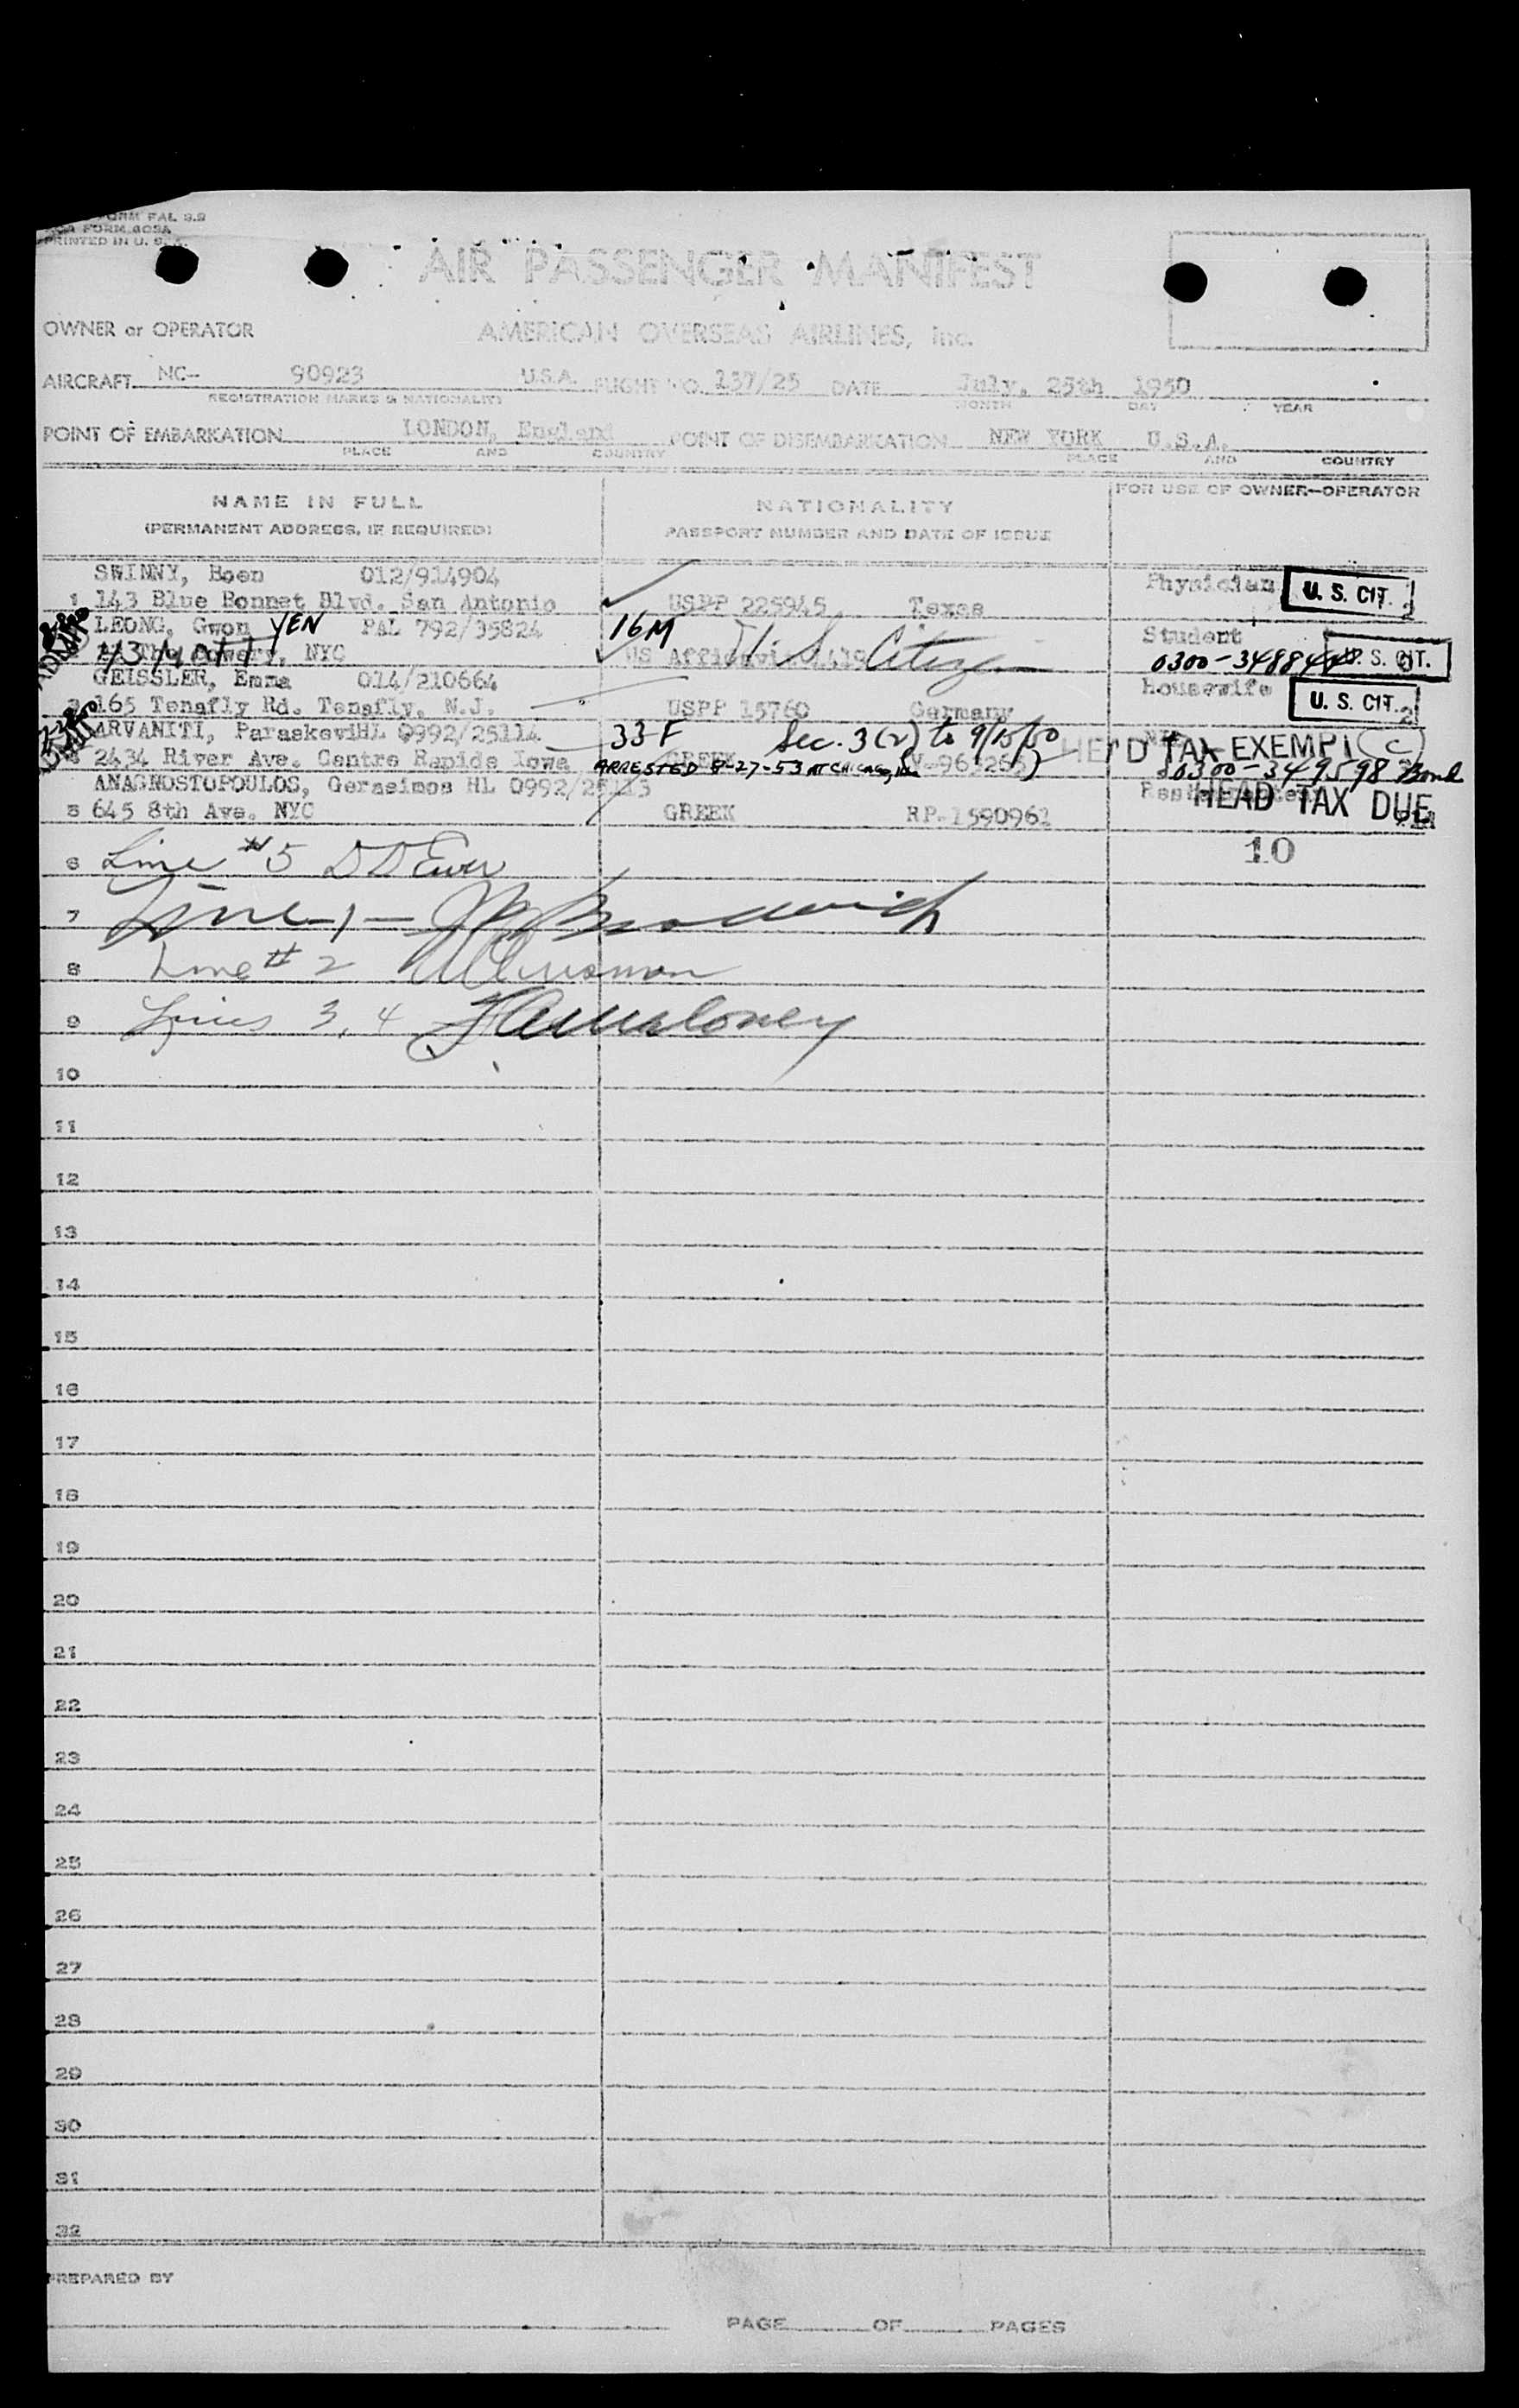 FORM FAL 3.2
FORM 603A
PRINTED IN U. S. A.
AIR PASSENGER MANIFEST
OWNER or OPERATOR AMERICAN OVERSEAS AIRLINES, Inc.
AIRCRAFT NC- 90923 U.S.A. FLIGHT NO. 137/25 DATE July, 25th 1950
REGISTRATION MARKS & NATIONALITY MONTH DAY YEAR
POINT OF EMBARKATION LONDON, England POINT OF DISEMBARKATION NEW YORK U.S.A.
PLACE AND COUNTRY PLACE AND COUNTRY
NAME IN FULL NATIONALITY FOR USE OF OWNER—OPERATOR
(PERMANENT ADDRESS, IF REQUIRED) PASSPORT NUMBER AND DATE OF ISSUE
SWINNY, Boen 012/914904 Physician U. S. CIT.
1 143 Blue Bonnet Blvd. San Antonio USPP 225945 Texas
LEONG, Gwon YEN PAL 792/35824 16M U S Citizen Student
43 MOTT Bowery, NYC US Affidavit 0300-34884 U. S. CIT.
GEISSLER, Emma 014/210664 Housewife
3 165 Tenafly Rd. Tenafly, N.J. USPP 15760 Germany U. S. CIT. 2
ARVANITI, Paraskevi HL 0992/25114 33-F Sec. 3(2) to 9/15/50 HEAD TAX EXEMPT (C)
2434 River Ave. Centre Rapids Iowa GREEK ARRESTED 8-27-53 AT CHICAGO, Ill. 0300-349598 Bond
ANAGNOSTOPOULOS, Gerasimos HL 0992/25113 HEAD TAX DUE
5 645 8th Ave. NYC GREEK RP-1590961
6 Line #5 10
7 Line 1 —
8 Line # 2
9 Lines 3, 4 Maloney
10
11
12
13
14
15
16
17
18
19
20
21
22
23
24
25
26
27
28
29
30
31
32
PREPARED BY
PAGE OF PAGES